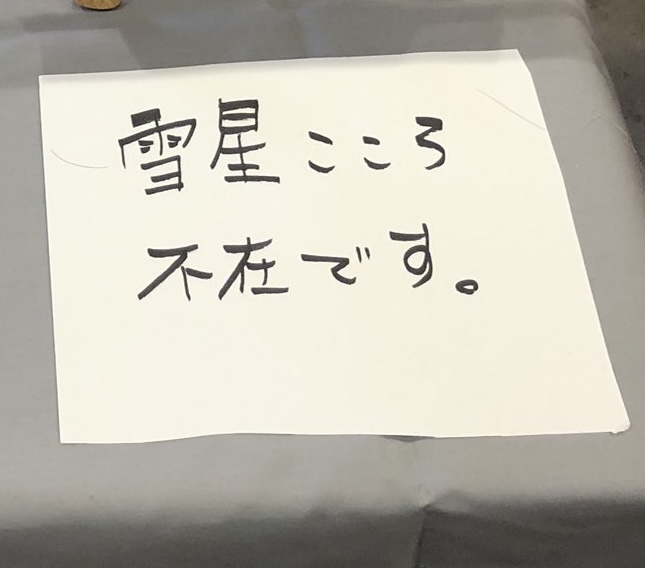 雪星こころ
不在です。